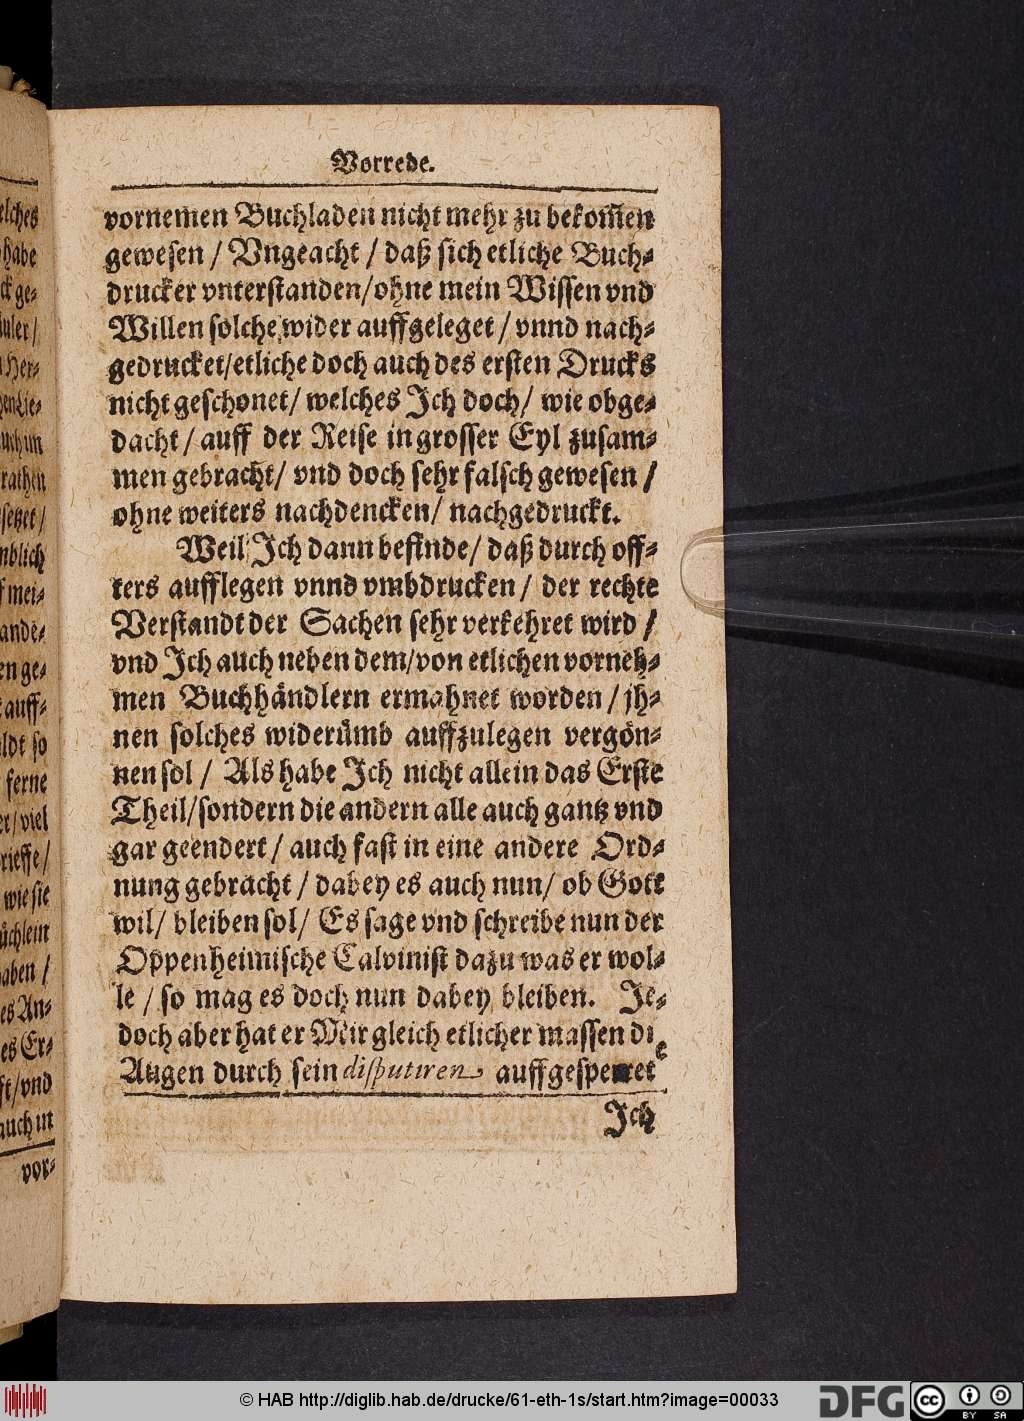 Vorrede.
vornemen Buchladen nicht mehr zu bekom̃en
gewesen / Vngeacht / daß sich etliche Buch-
drucker vnterstanden/ohne mein Wissen vnd
Willen solche wider auffgeleget / vnnd nach-
gedrucket/etliche doch auch des ersten Drucks
nicht geschonet/ welches Ich doch/ wie obge-
dacht / auff der Reise in grosser Eyl zusam-
men gebracht/ vnd doch sehr falsch gewesen /
ohne weiters nachdencken/ nachgedruckt.
Weil Ich dann befinde/ daß durch off-
ters aufflegen vnnd vmbdrucken / der rechte
Verstandt der Sachen sehr verkehret wird /
vnd Ich auch neben dem/von etlichen vorneh-
men Buchhändlern ermahnet worden / jh-
nen solches widerümb auffzulegen vergön-
nen sol / Als habe Ich nicht allein das Erste
Theil/sondern die andern alle auch gantz vnd
gar geendert / auch fast in eine andere Ord-
nung gebracht / dabey es auch nun/ ob Gott
wil/ bleiben sol/ Es sage vnd schreibe nun der
Oppenheimische Calvinist dazu was er wol-
le / so mag es doch nun dabey bleiben. Je-
doch aber hat er Mir gleich etlicher massen die
Augen durch sein disputiren auffgesperret
Ich
elches
habe
ck ge-
uler /
Her-
en Lie-
uch im
rathen
setzet /
nblich
mei-
andē-
en ge-
auff-
ldt so
ferne
er / viel
rieffe /
wie sie
üchlein
aben /
es An-
es Er-
ft / vnd
auch in
vor-
© HAB http://diglib.hab.de/drucke/61-eth-1s/start.htm?image=00033
DFG
cc BY SA